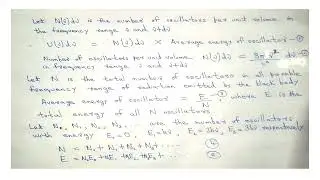 Let N(ϑ)dν is the number of oscillators per unit volume in
the frequency range ϑ and ϑ+dν
∴ U(ϑ)dν = N(ϑ)dν × Average energy of oscillator - ①
Number of oscillators per unit volume N(ϑ)dν = 8πν²/c³ dν - ②
in frequency range ϑ and ϑ+dν
Let N is the total number of oscillators in all possible
frequency range of radiation emitted by the black body
Average energy of oscillator = E/N - ③, where E is the
total energy of all N oscillators
Let N₀, N₁, N₂, N₃ .. are the number of oscillators
with energy E₀=0, E₁=hν, E₂=2hν, E₃=3hν respectively
N = N₀ + N₁ + N₂ + ..... ④
E = N₀E₀ + N₁E₁ + N₂E₂ + ..... ⑤